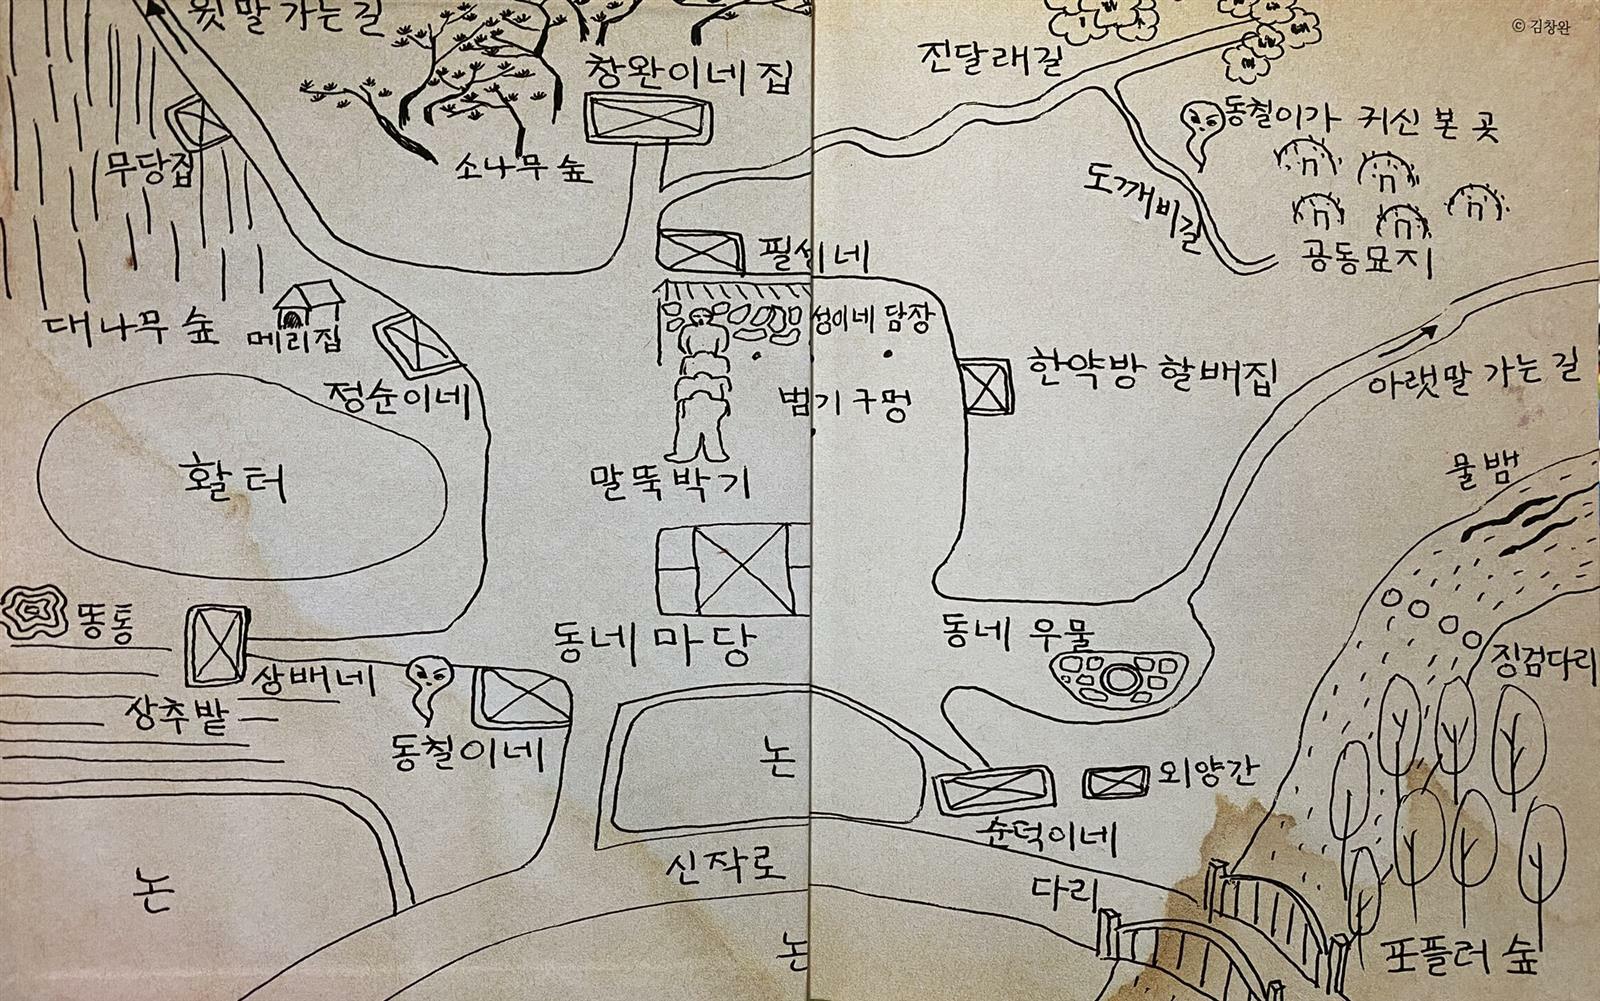 윗말 가는 길
© 김창완
진달래길
창완이네 집
동칠이가 귀신 본 곳
무당집
소나무 숲
도깨비길
공동묘지
필성이네
대나무 숲
메리집
성이네 담장
아랫말 가는 길
한약방 할배집
정순이네
범기 구멍
말뚝박기
활터
물뱀
똥통
동네 마당
동네 우물
징검다리
상배네
상추밭
동칠이네
논
외양간
순덕이네
신작로
다리
논
논
포플러 숲